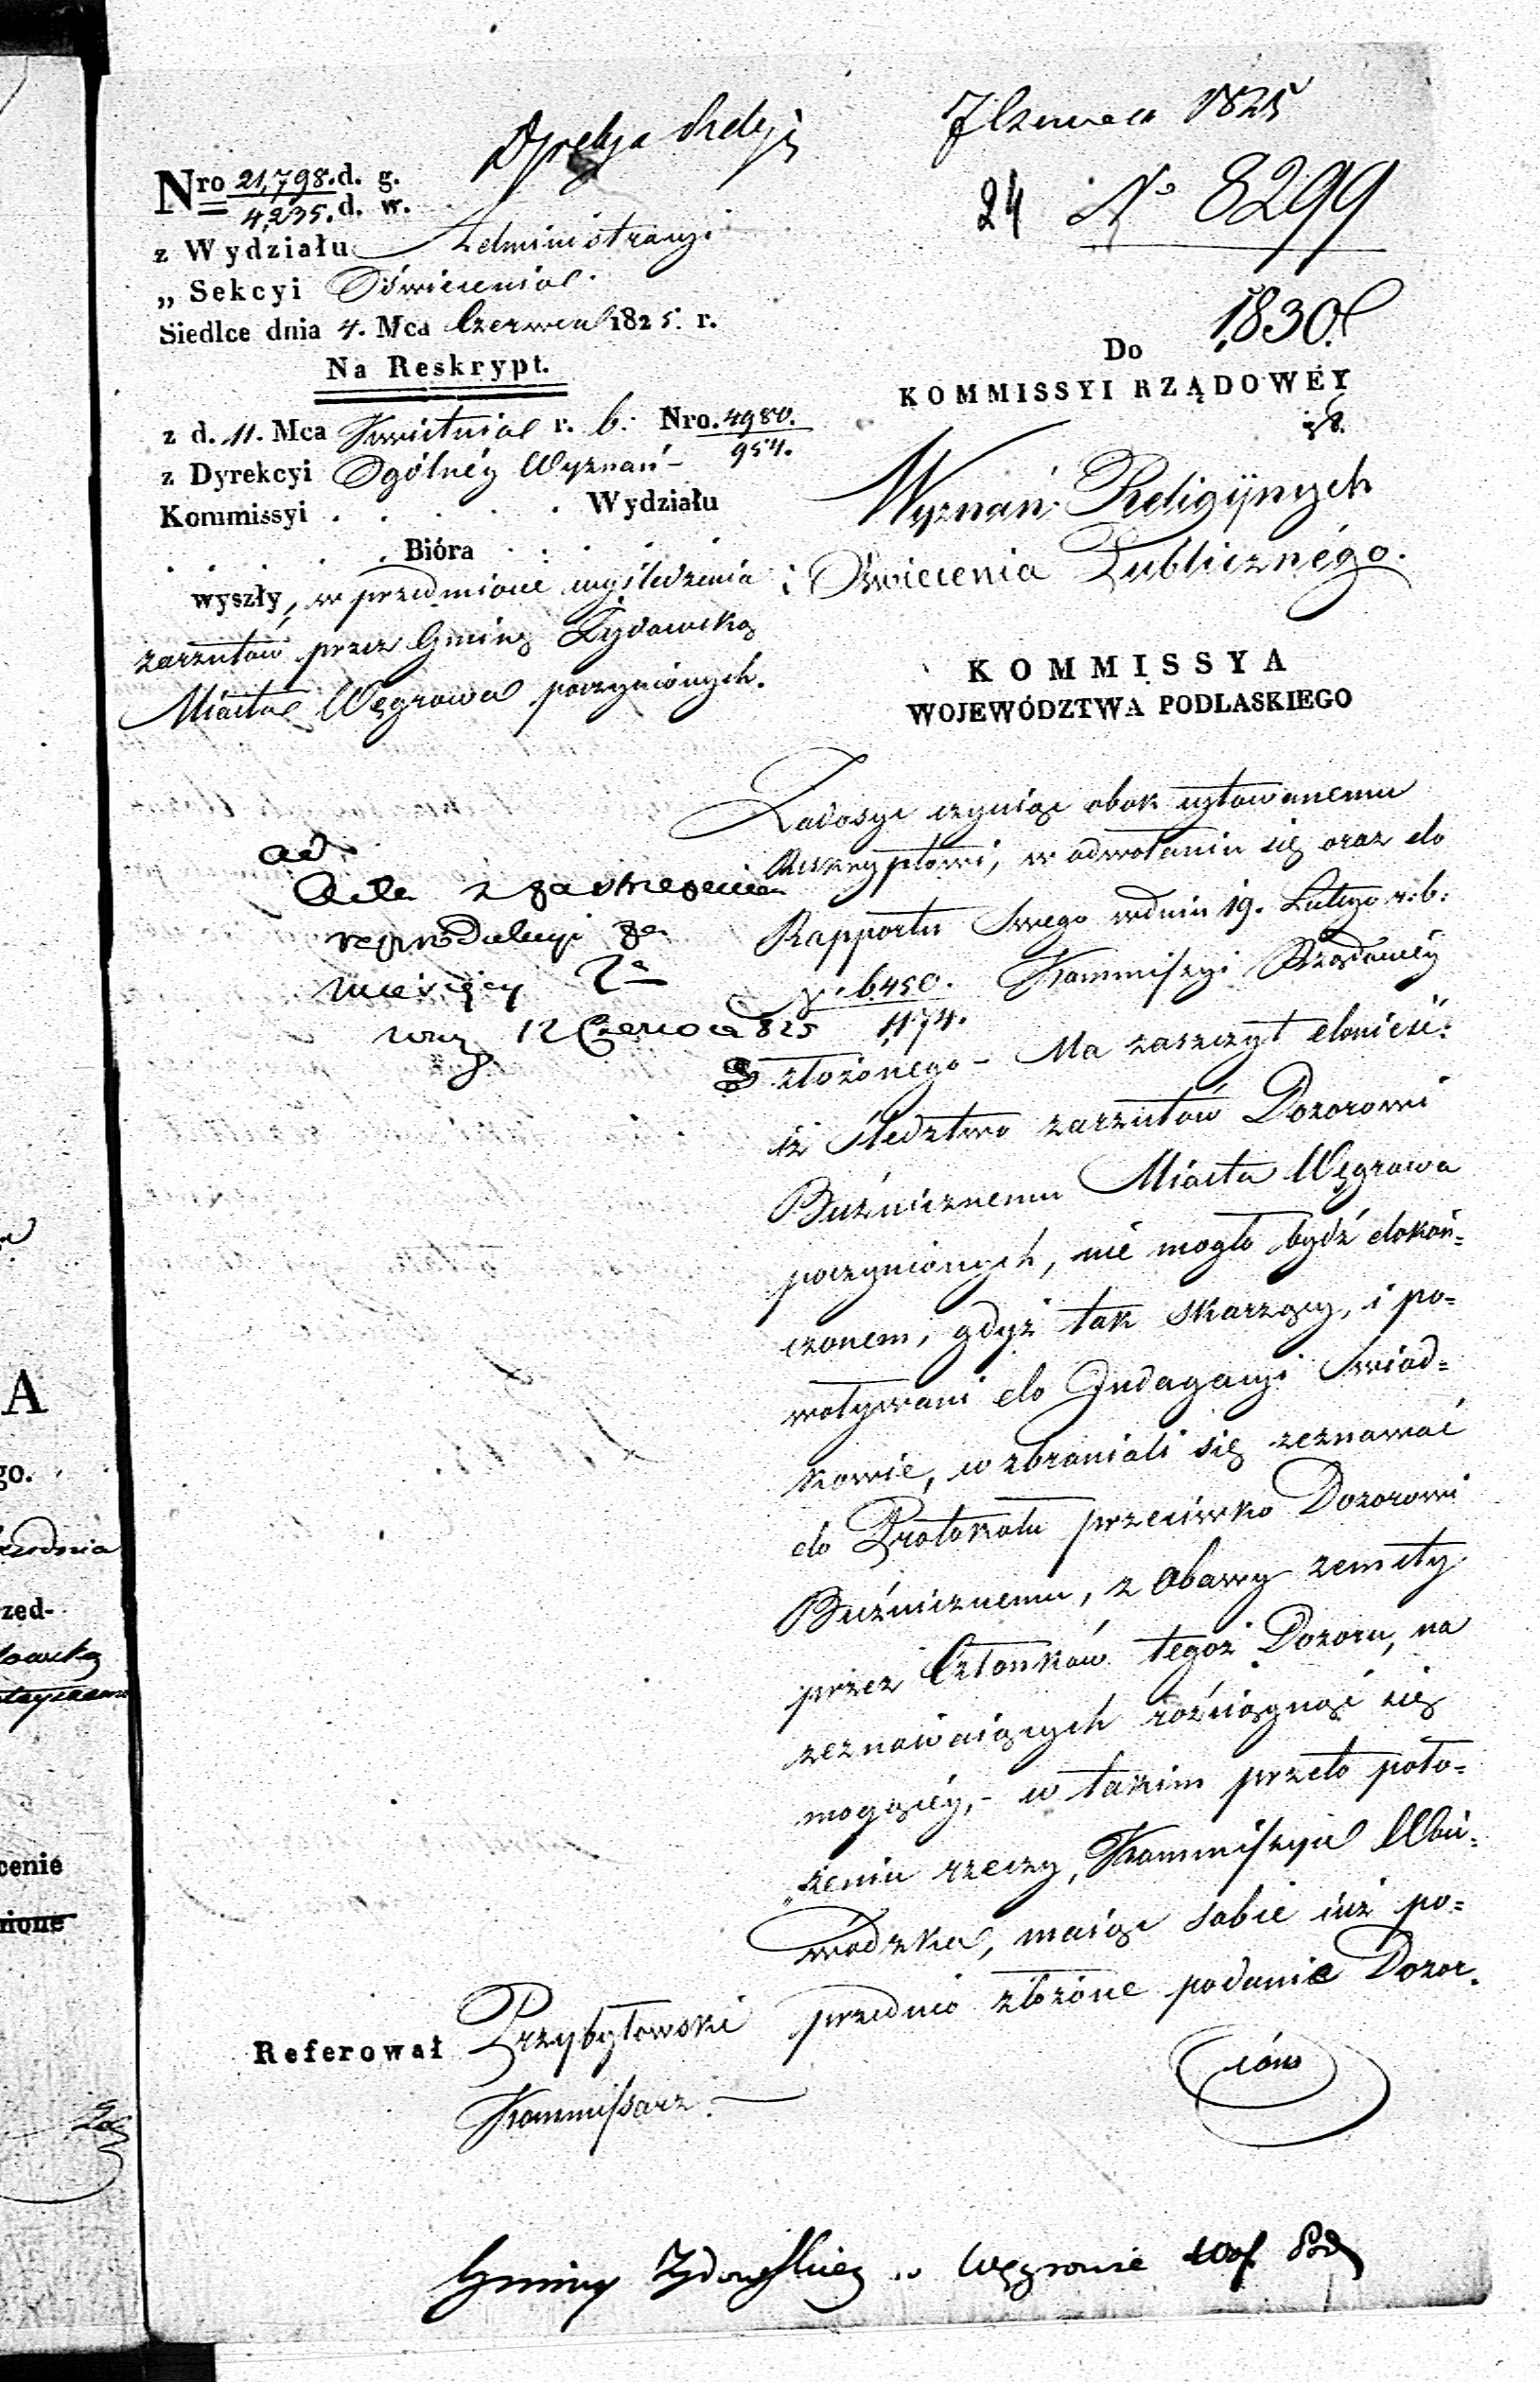 7 Czerwca 1825
24 No 8299
Nro 21,798. d. g.
4,235. d. w.
z Wydziału Administracyi
„ Sekcyi Oświecenia
Siedlce dnia 4. Mca Czerwca 1825. r.
Na Reskrypt.
z d. 11. Mca Kwietnia r. b. Nro. 4980.
954.
z Dyrekcyi Ogólnéy Wyznań –
Kommissyi . . . . . Wydziału
. . . . Bióra . . . .
wyszły, w przedmiocie wyśledzenia
zarzutów przez Gminę Żydowską
Miasta Węgrowa poczynionych.
1,830.
Do
KOMMISSYI RZĄDOWÉY
Wyznań Religijnych
i Oświecenia Publicznégo.
KOMMISSYA
WOJEWÓDZTWA PODLASKIEGO
Zadosyc czyniąc obok cytowanemu
Reskryptowi, w odwołaniu się oraz do
Rapportu Swego w dniu 19. Lutego r. b.
N. 6,450. Kommissyi Rządowéy
1,174.
złożónego – Ma zaszczyt donieść:
iż Śledztwo zarzutów Dozorowi
Bużnicznemu Miasta Węgrowa
poczynionych, nié mogło bydź dokoń=
czonem, gdyż tak skarzący, i po=
woływani do Indagacyi Swiad=
kowie, wzbraniali się zeznawać
do Protokołu przeciwko Dozorowi
Bużnicznemu, z obawy zemsty
przez Członków tegoż Dozoru, na
zeznawaiących rościągnąć się
mogącéy, – w takim przeto poło=
„żeniu rzeczy, Kommissya Woie=
wódzka, maiąc sobie iuż po=
przednio złożóne podanie Dozor=
ców
ad
Acta z zastrzeżeniem
reprodukcyi za
miesięcy 2a
12 Czerwca 825
Referował Przybyłowski
Kommissarz. —
Gminy Żydowskiey w Węgrowie Woj. Podl